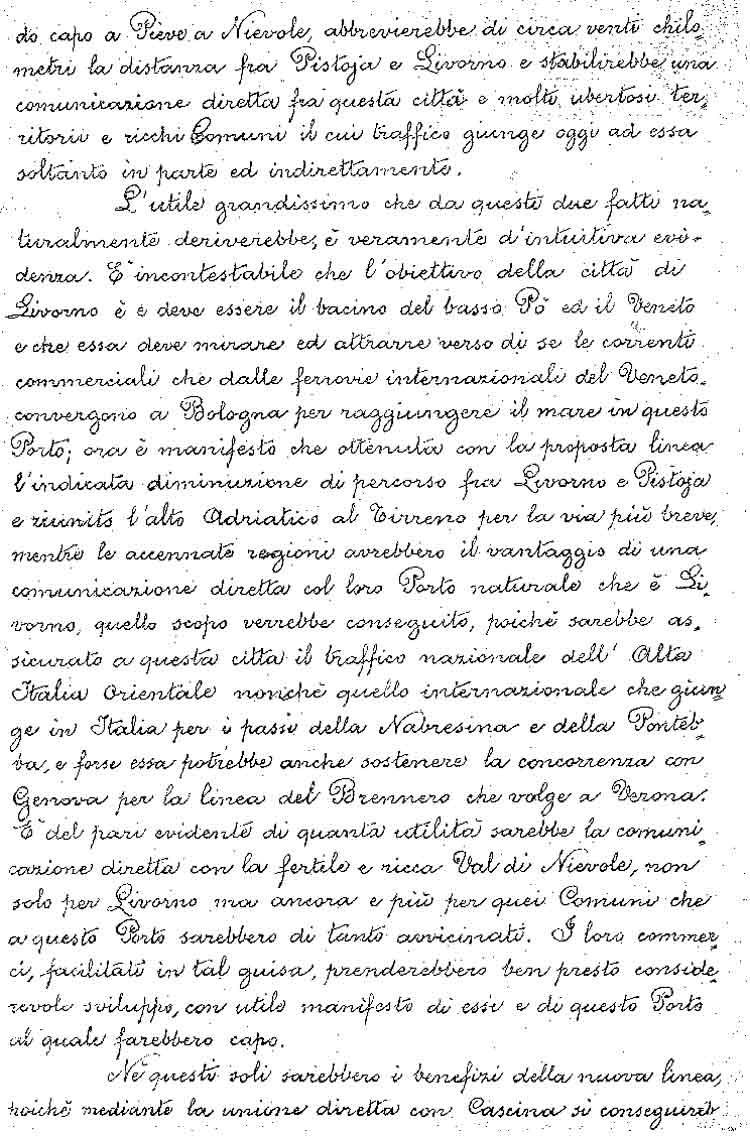 do capo a Pieve a Nievole, abbrevierebbe di circa venti chilo-
metri la distanza fra Pistoja e Livorno e stabilirebbe una
comunicazione diretta fra questa città e molti ubertosi ter-
ritorii e ricchi Comuni il cui traffico giunge oggi ad essa
soltanto in parte ed indirettamente.
L'utile grandissimo che da questi due fatti na-
turalmente deriverebbe, è veramente d'intuitiva evi-
denza. E' incontestabile che l'obiettivo della città di
Livorno è e deve essere il bacino del basso Pò ed il Veneto
e che essa deve mirare ed attrarre verso di se le correnti
commerciali che dalle ferrovie internazionali del Veneto
convergono a Bologna per raggiungere il mare in questo
Porto; ora è manifesto che ottenuta con la proposta linea
l'indicata diminuzione di percorso fra Livorno e Pistoja
e riunito l'alto Adriatico al Tirreno per la via più breve,
mentre le accennate regioni avrebbero il vantaggio di una
comunicazione diretta col loro Porto naturale che è Li-
vorno, quello scopo verrebbe conseguito, poichè sarebbe as-
sicurato a questa città il traffico nazionale dell' Alta
Italia Orientale nonchè quello internazionale che giun-
ge in Italia per i passi della Nabresina e della Ponteb-
ba, e forse essa potrebbe anche sostenere la concorrenza con
Genova per la linea del Brennero che volge a Verona.
E' del pari evidente di quanta utilità sarebbe la comuni-
cazione diretta con la fertile e ricca Val di Nievole, non
solo per Livorno ma ancora e più per quei Comuni che
a questo Porto sarebbero di tanto avvicinati. I loro commer-
ci, facilitati in tal guisa, prenderebbero ben presto conside-
revole sviluppo, con utile manifesto di essi e di questo Porto
al quale farebbero capo.
Nè questi soli sarebbero i benefizi della nuova linea,
poichè mediante la unione diretta con Cascina si conseguireb